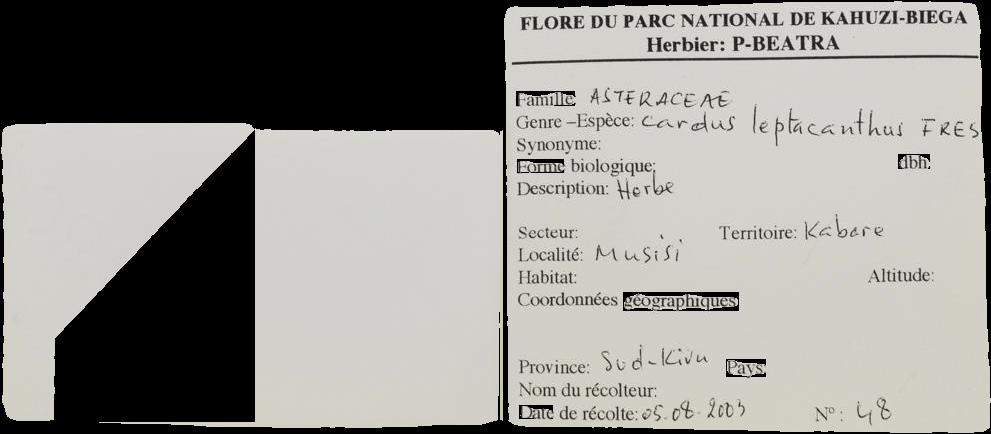 FLORE DU PARC NATIONAL DE KAHUZI-BIEGA
Herbier: P-BEATRA
Famille ASTERACEAE
Genre –Espèce: Cardus leptacanthus FRES
Synonyme:
Forme biologique: dbh:
Description: Herbe
Secteur: Territoire: Kabare
Localité: Musisi
Habitat: Altitude:
Coordonnées géographiques
Province: Sud-Kivu Pays:
Nom du récolteur:
Date de récolte: 05.08.2003 N°: 48